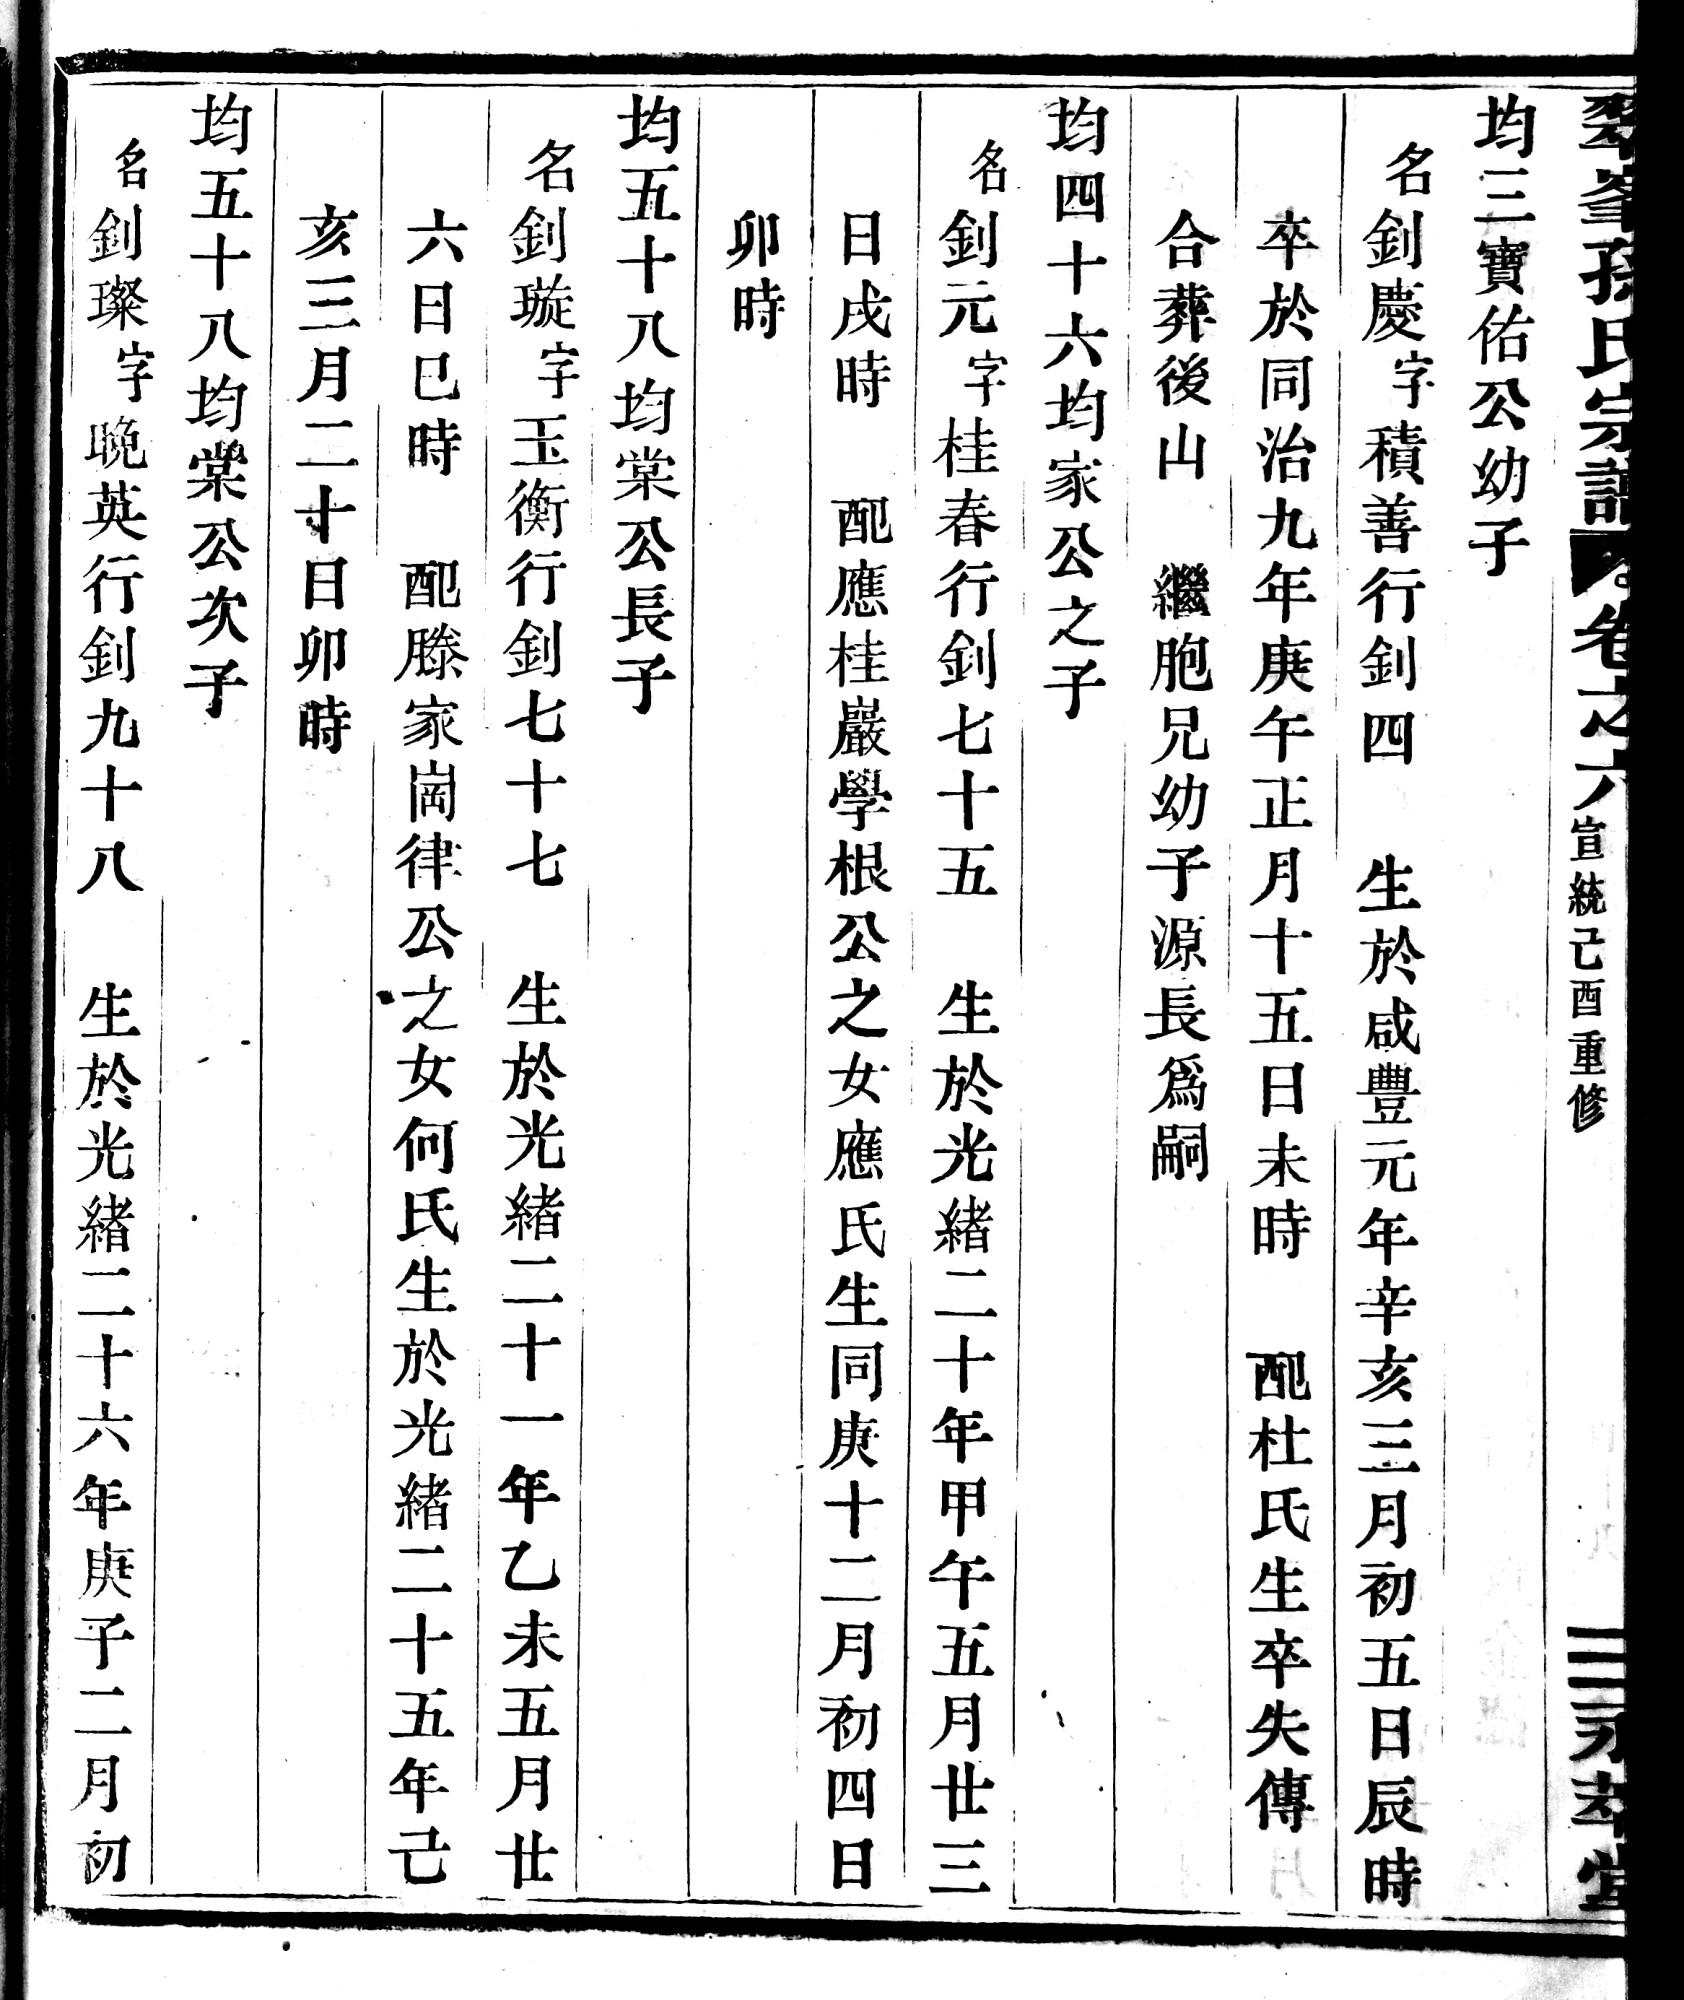 翠峯孫氏宗譜 卷之六 宣統己酉重修 三 永萃堂
均三寶佑公幼子
名釗慶字積善行釗四 生於咸豐元年辛亥三月初五日辰時
卒於同治九年庚午正月十五日未時 配杜氏生卒失傳
合葬後山 繼胞兄幼子源長爲嗣
均四十六均家公之子
名釗元字桂春行釗七十五 生於光緒二十年甲午五月廿三
日戌時 配應桂巖學根公之女應氏生同庚十二月初四日
卯時
均五十八均棠公長子
名釗璇字玉衡行釗七十七 生於光緒二十一年乙未五月廿
六日巳時 配滕家崗律公之女何氏生於光緒二十五年己
亥三月二十日卯時
均五十八均棠公次子
名釗璨字晚英行釗九十八 生於光緒二十六年庚子二月初